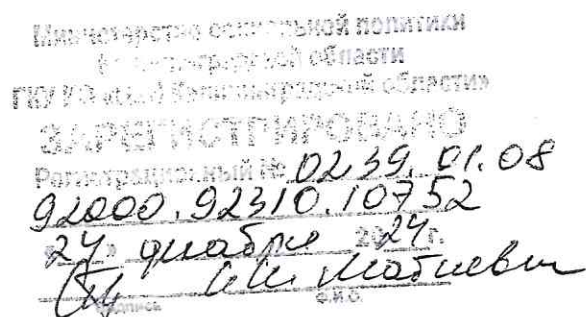 Министерство социальной политики
Калининградской области
ГКУ КО «ЦЗН Калининградской области»
ЗАРЕГИСТРИРОВАНО
Регистрационный № 0239.01.08
92000.92310.10752
«24» декабря 2024г.
Матиевич
подпись Ф.И.О.